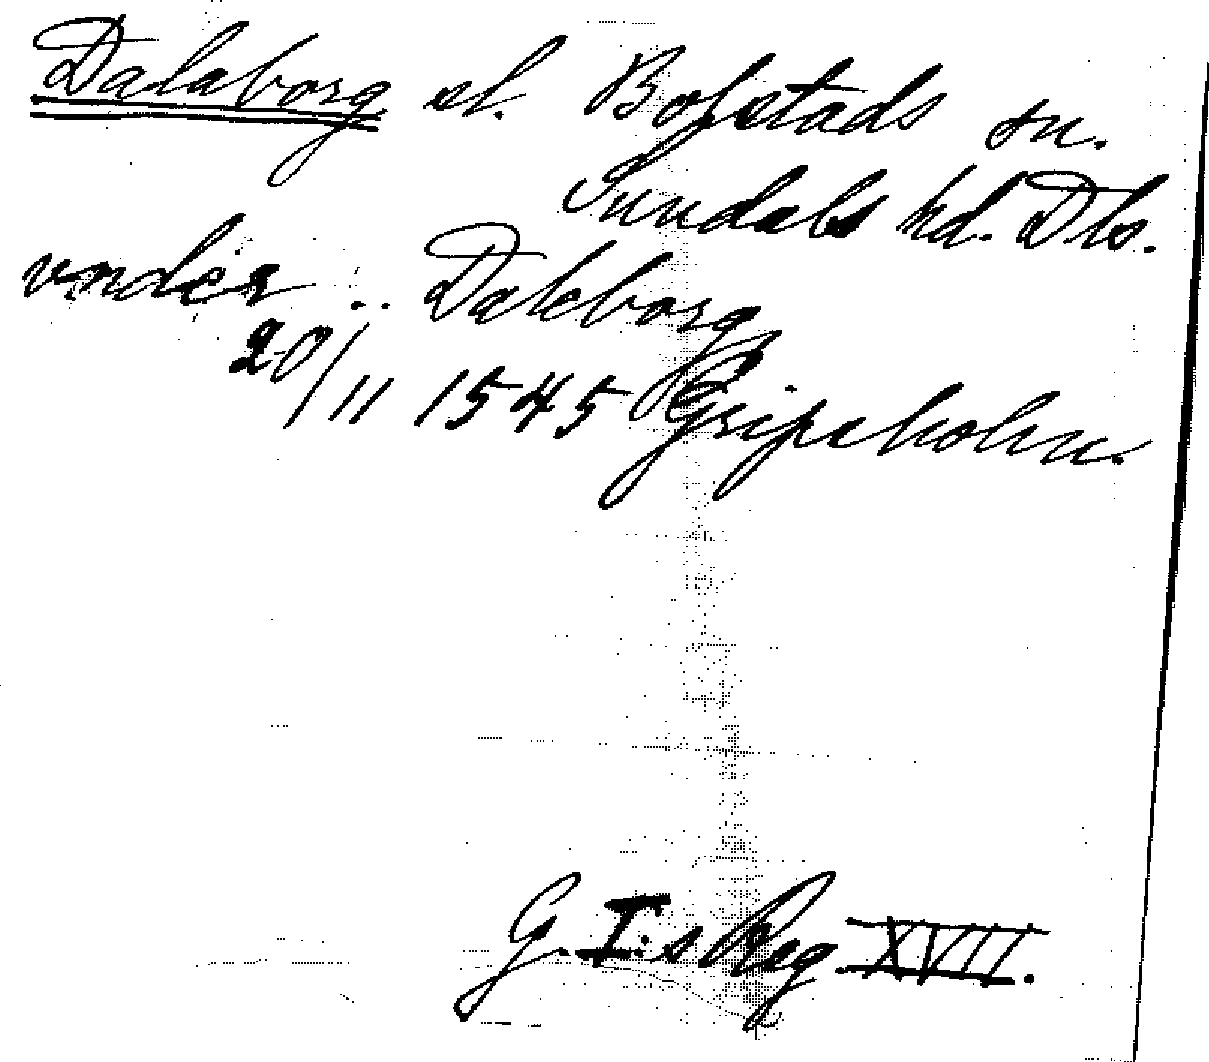 Dalaborg sl. Bolstads sn.
Sundals hd. Dls.
vnder .. Daleborg
20/11 1545 Gripsholm.
G. I:s Reg. XVII.